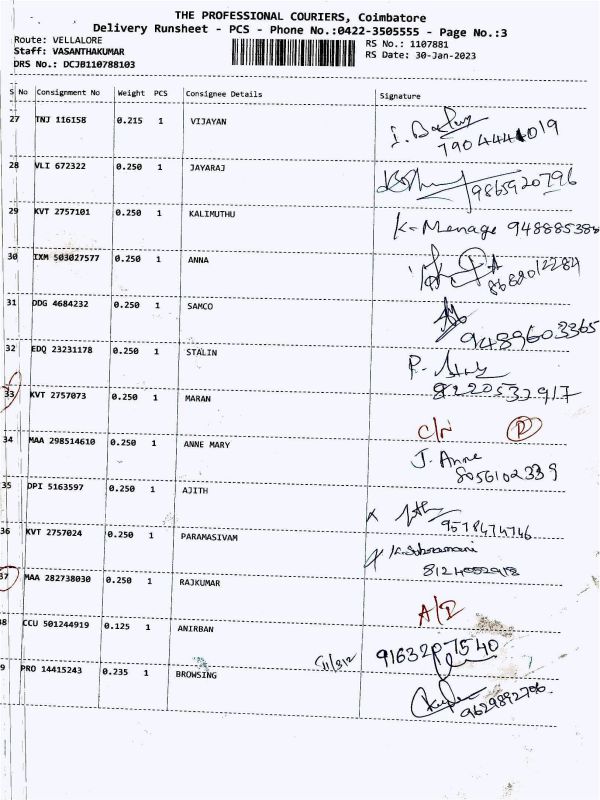 THE PROFESSIONAL COURIERS, Coimbatore
Delivery Runsheet - PCS - Phone No.:0422-3505555 - Page No.:3
Route: VELLALORE
Staff: VASANTHAKUMAR
DRS No.: DCJB110788103
RS No.: 1107881
RS Date: 30-Jan-2023
S No Consignment No Weight PCS Consignee Details Signature
27 TNJ 116158 0.215 1 VIJAYAN
7904444019
28 VLI 672322 0.250 1 JAYARAJ
9865920796
29 KVT 2757101 0.250 1 KALIMUTHU
K-Menage 948885388
30 IXM 503027577 0.250 1 ANNA
31 DDG 4684232 0.250 1 SAMCO
9489603365
32 EDQ 23231178 0.250 1 STALIN
8220532917
33 KVT 2757073 0.250 1 MARAN
C/N D
34 MAA 298514610 0.250 1 ANNE MARY
J. Anne
8056102339
35 DPI 5163597 0.250 1 AJITH
9578474746
36 KVT 2757024 0.250 1 PARAMASIVAM
37 MAA 282738030 0.250 1 RAJKUMAR
A/D
38 CCU 501244919 0.125 1 ANIRBAN
9163207540
9 PRO 14415243 0.235 1 BROWSING
9629892796